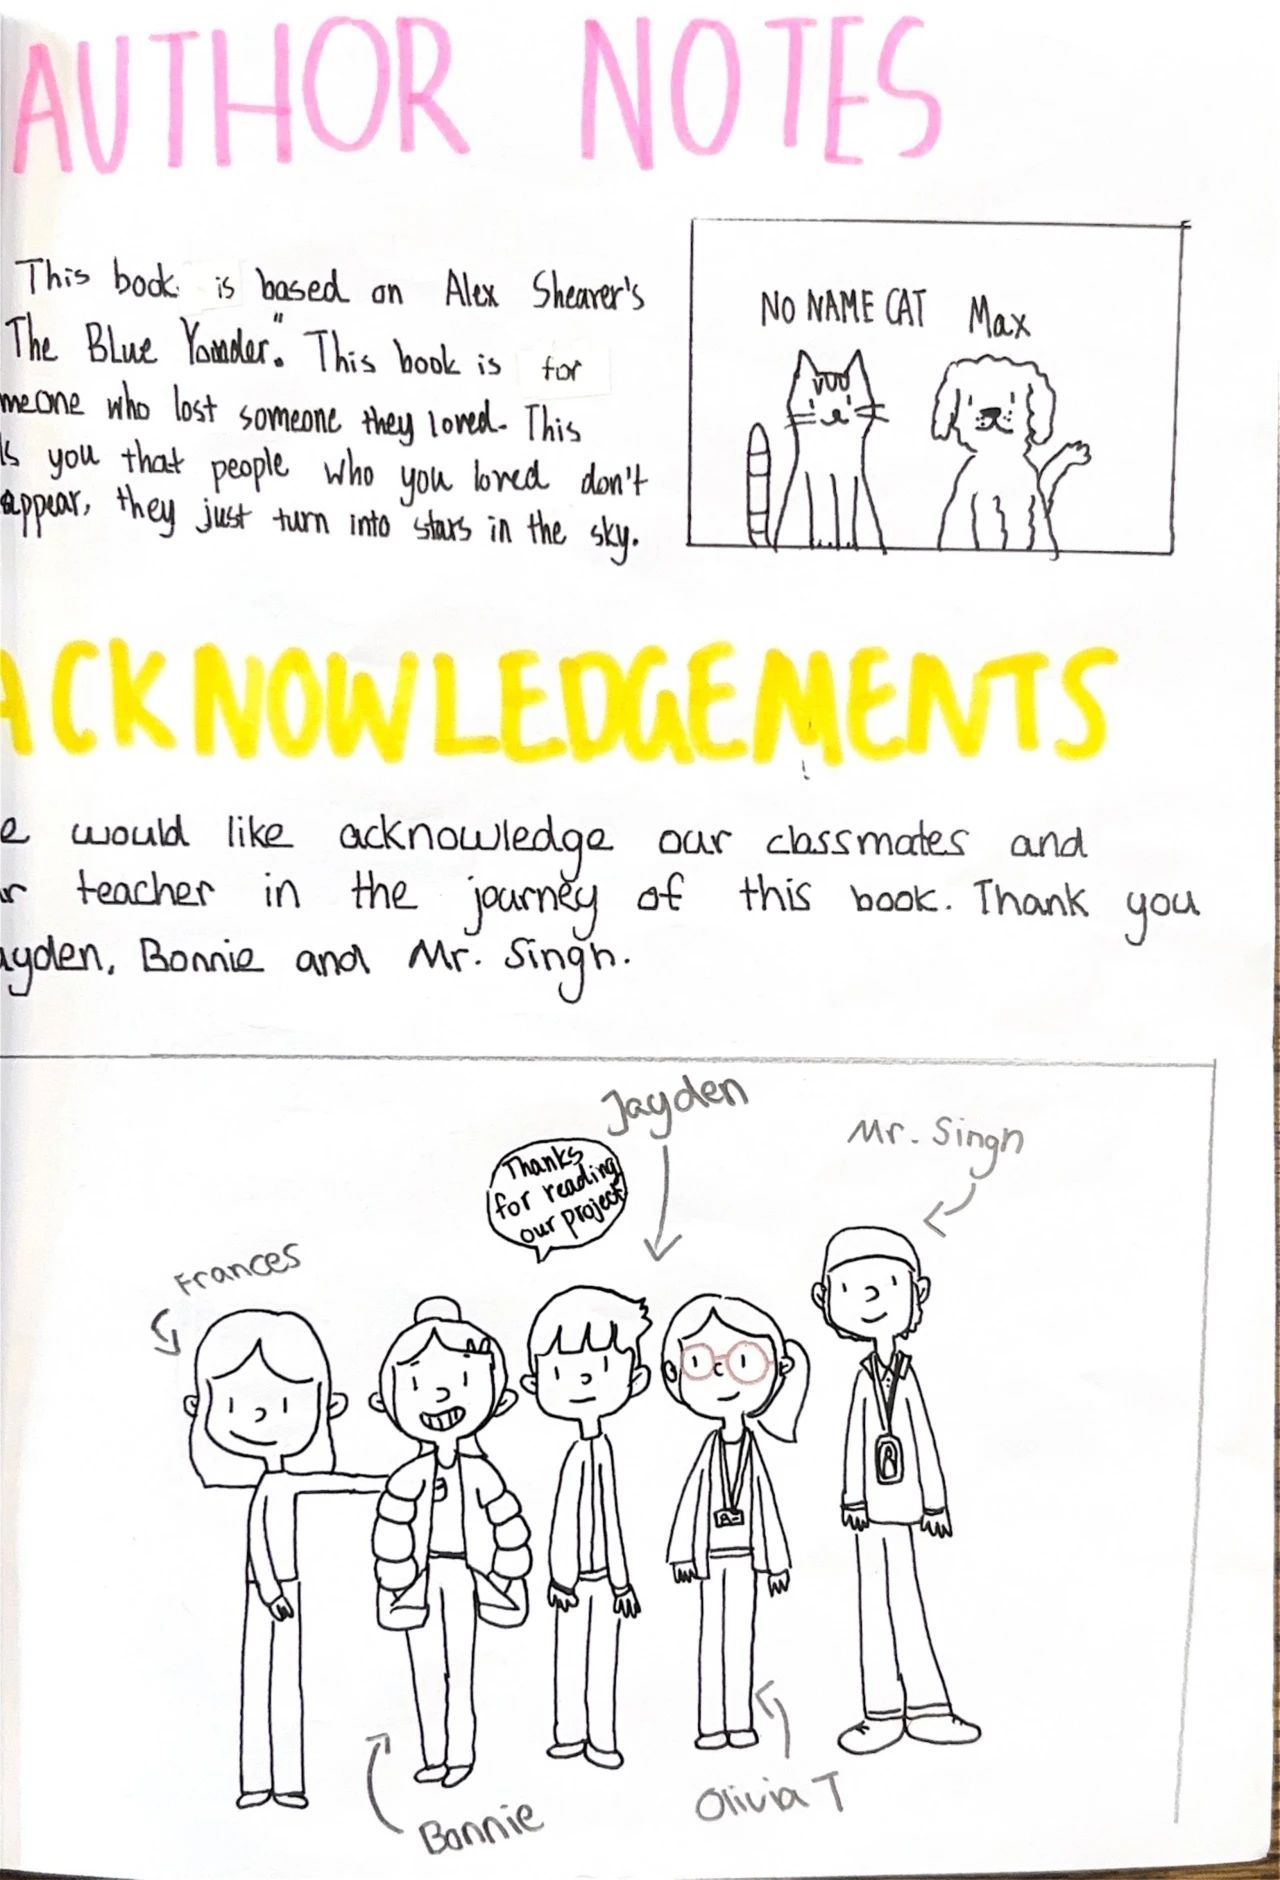 AUTHOR NOTES
This book is based on Alex Shearer's
The Blue Yonder." This book is for
meone who lost someone they loved. This
ls you that people who you loved don't
appear, they just turn into stars in the sky.
NO NAME CAT
Max
ACKNOWLEDGEMENTS
e would like acknowledge our classmates and
ur teacher in the journey of this book. Thank you
ayden, Bonnie and Mr. Singh.
Jayden
Mr. Singh
Thanks
for reading
our project
Frances
Bonnie
Olivia T